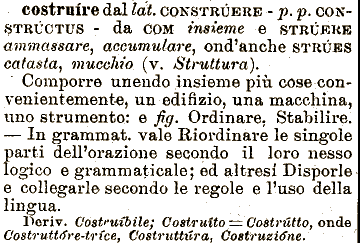 costruíre dal lat. CONSTRÚERE - p. p. CON-
STRÚCTUS - da COM insieme e STRÚERE
ammassare, accumulare, ond'anche STRÚES
catasta, mucchio (v. Struttura).
Comporre unendo insieme più cose con-
venientemente, un edifizio, una macchina,
uno strumento: e fig. Ordinare, Stabilire.
— In grammat. vale Riordinare le singole
parti dell'orazione secondo il loro nesso
logico e grammaticale; ed altresí Disporle
e collegarle secondo le regole e l'uso della
lingua.
Deriv. Costruíbile; Costruíto = Costrútto, onde
Costruttóre-tríce, Costruttúra, Costruzióne.